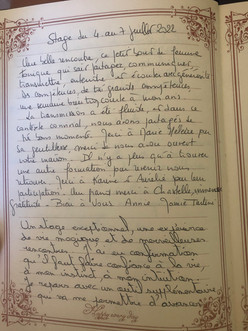 Stage du 4 au 7 juillet 2022
Une belle rencontre, ce petit bout de femme
tonique qui sait partager, communiquer,
transmettre, entendre et écouter avec générosité
les compétences, de ta grande
une semaine trop courte à mon
La transmission a été fluide, et dans ce
contexte convivial, nous avons partagés de
bons moments. Merci à Marie pour
sa gentillesse, merci de nous avoir ouvert
votre maison. Il n'y a plus qu'à trouver
une autre formation pour venir nous
retrouver. Merci à et Aurélie pour leur
participation. Un petit merci à
Gratitude. Bien à Vous. Anne Marie
Un stage exceptionnel, une expérience
de vie magique et de merveilleuses
rencontres. J'ai eu confirmation
qu'il faut faire confiance à la vie,
à mon instinct, à mon intuition.
Je repars avec un outil supplémentaire
qui va me permettre d'avancer